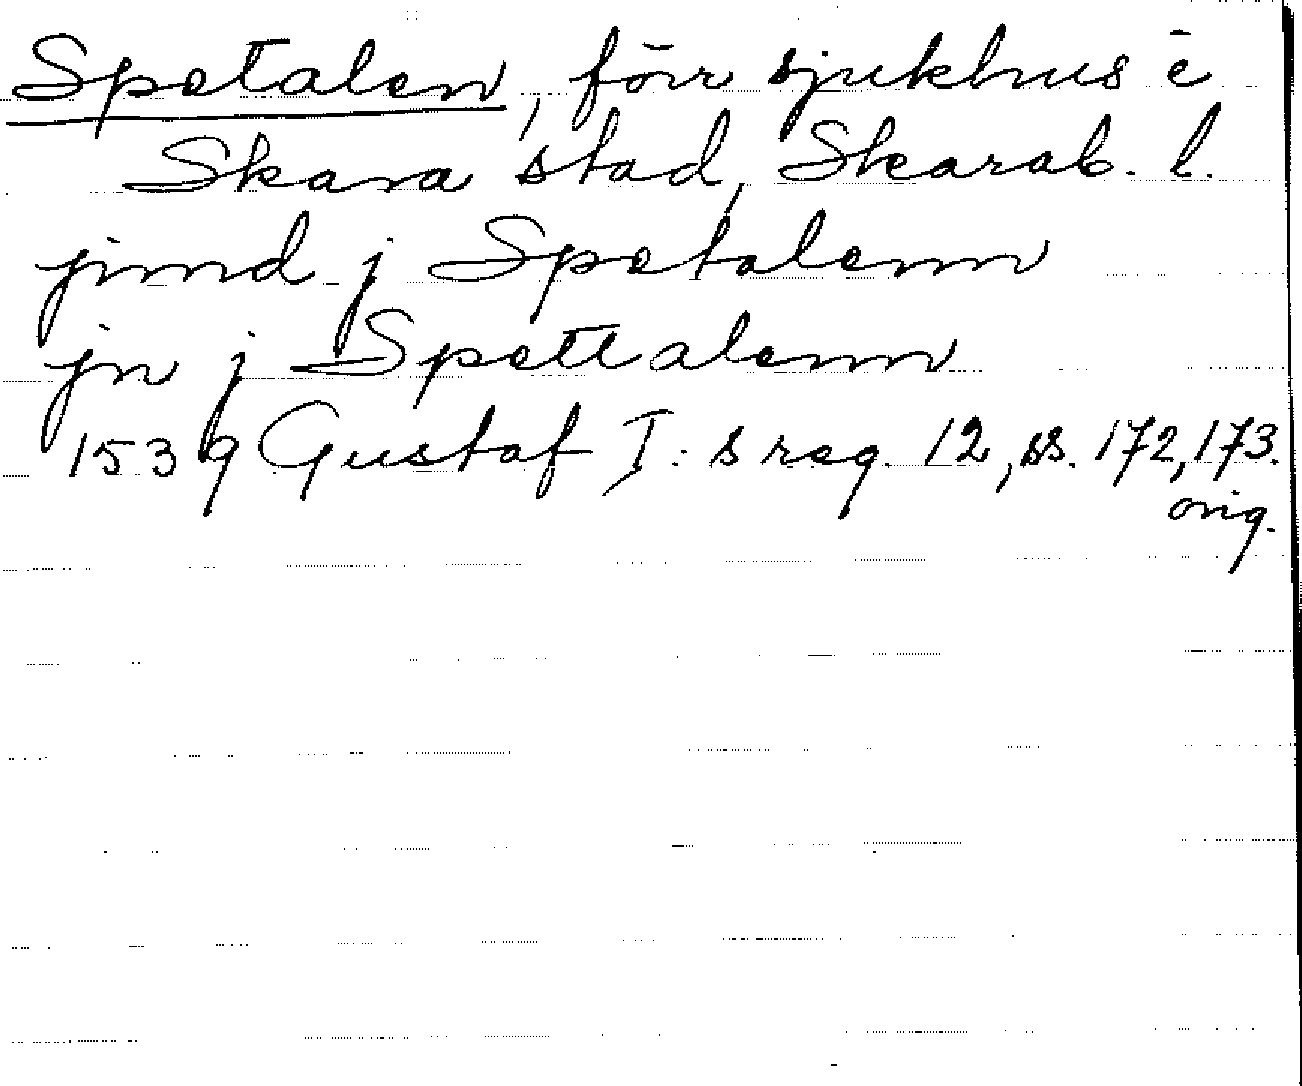 Spetalen, förr sjukhus i
Skara stad, Skarab. l.
jnnd j Spetalenn
jn j Spettalenn
1539 Gustaf I:s reg. 12, ss. 172, 173.
orig.